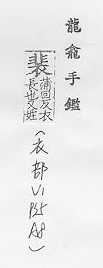 龍龕手鑑
裴
蒲回反衣
長也又姓
(衣部V1
P25
A8)